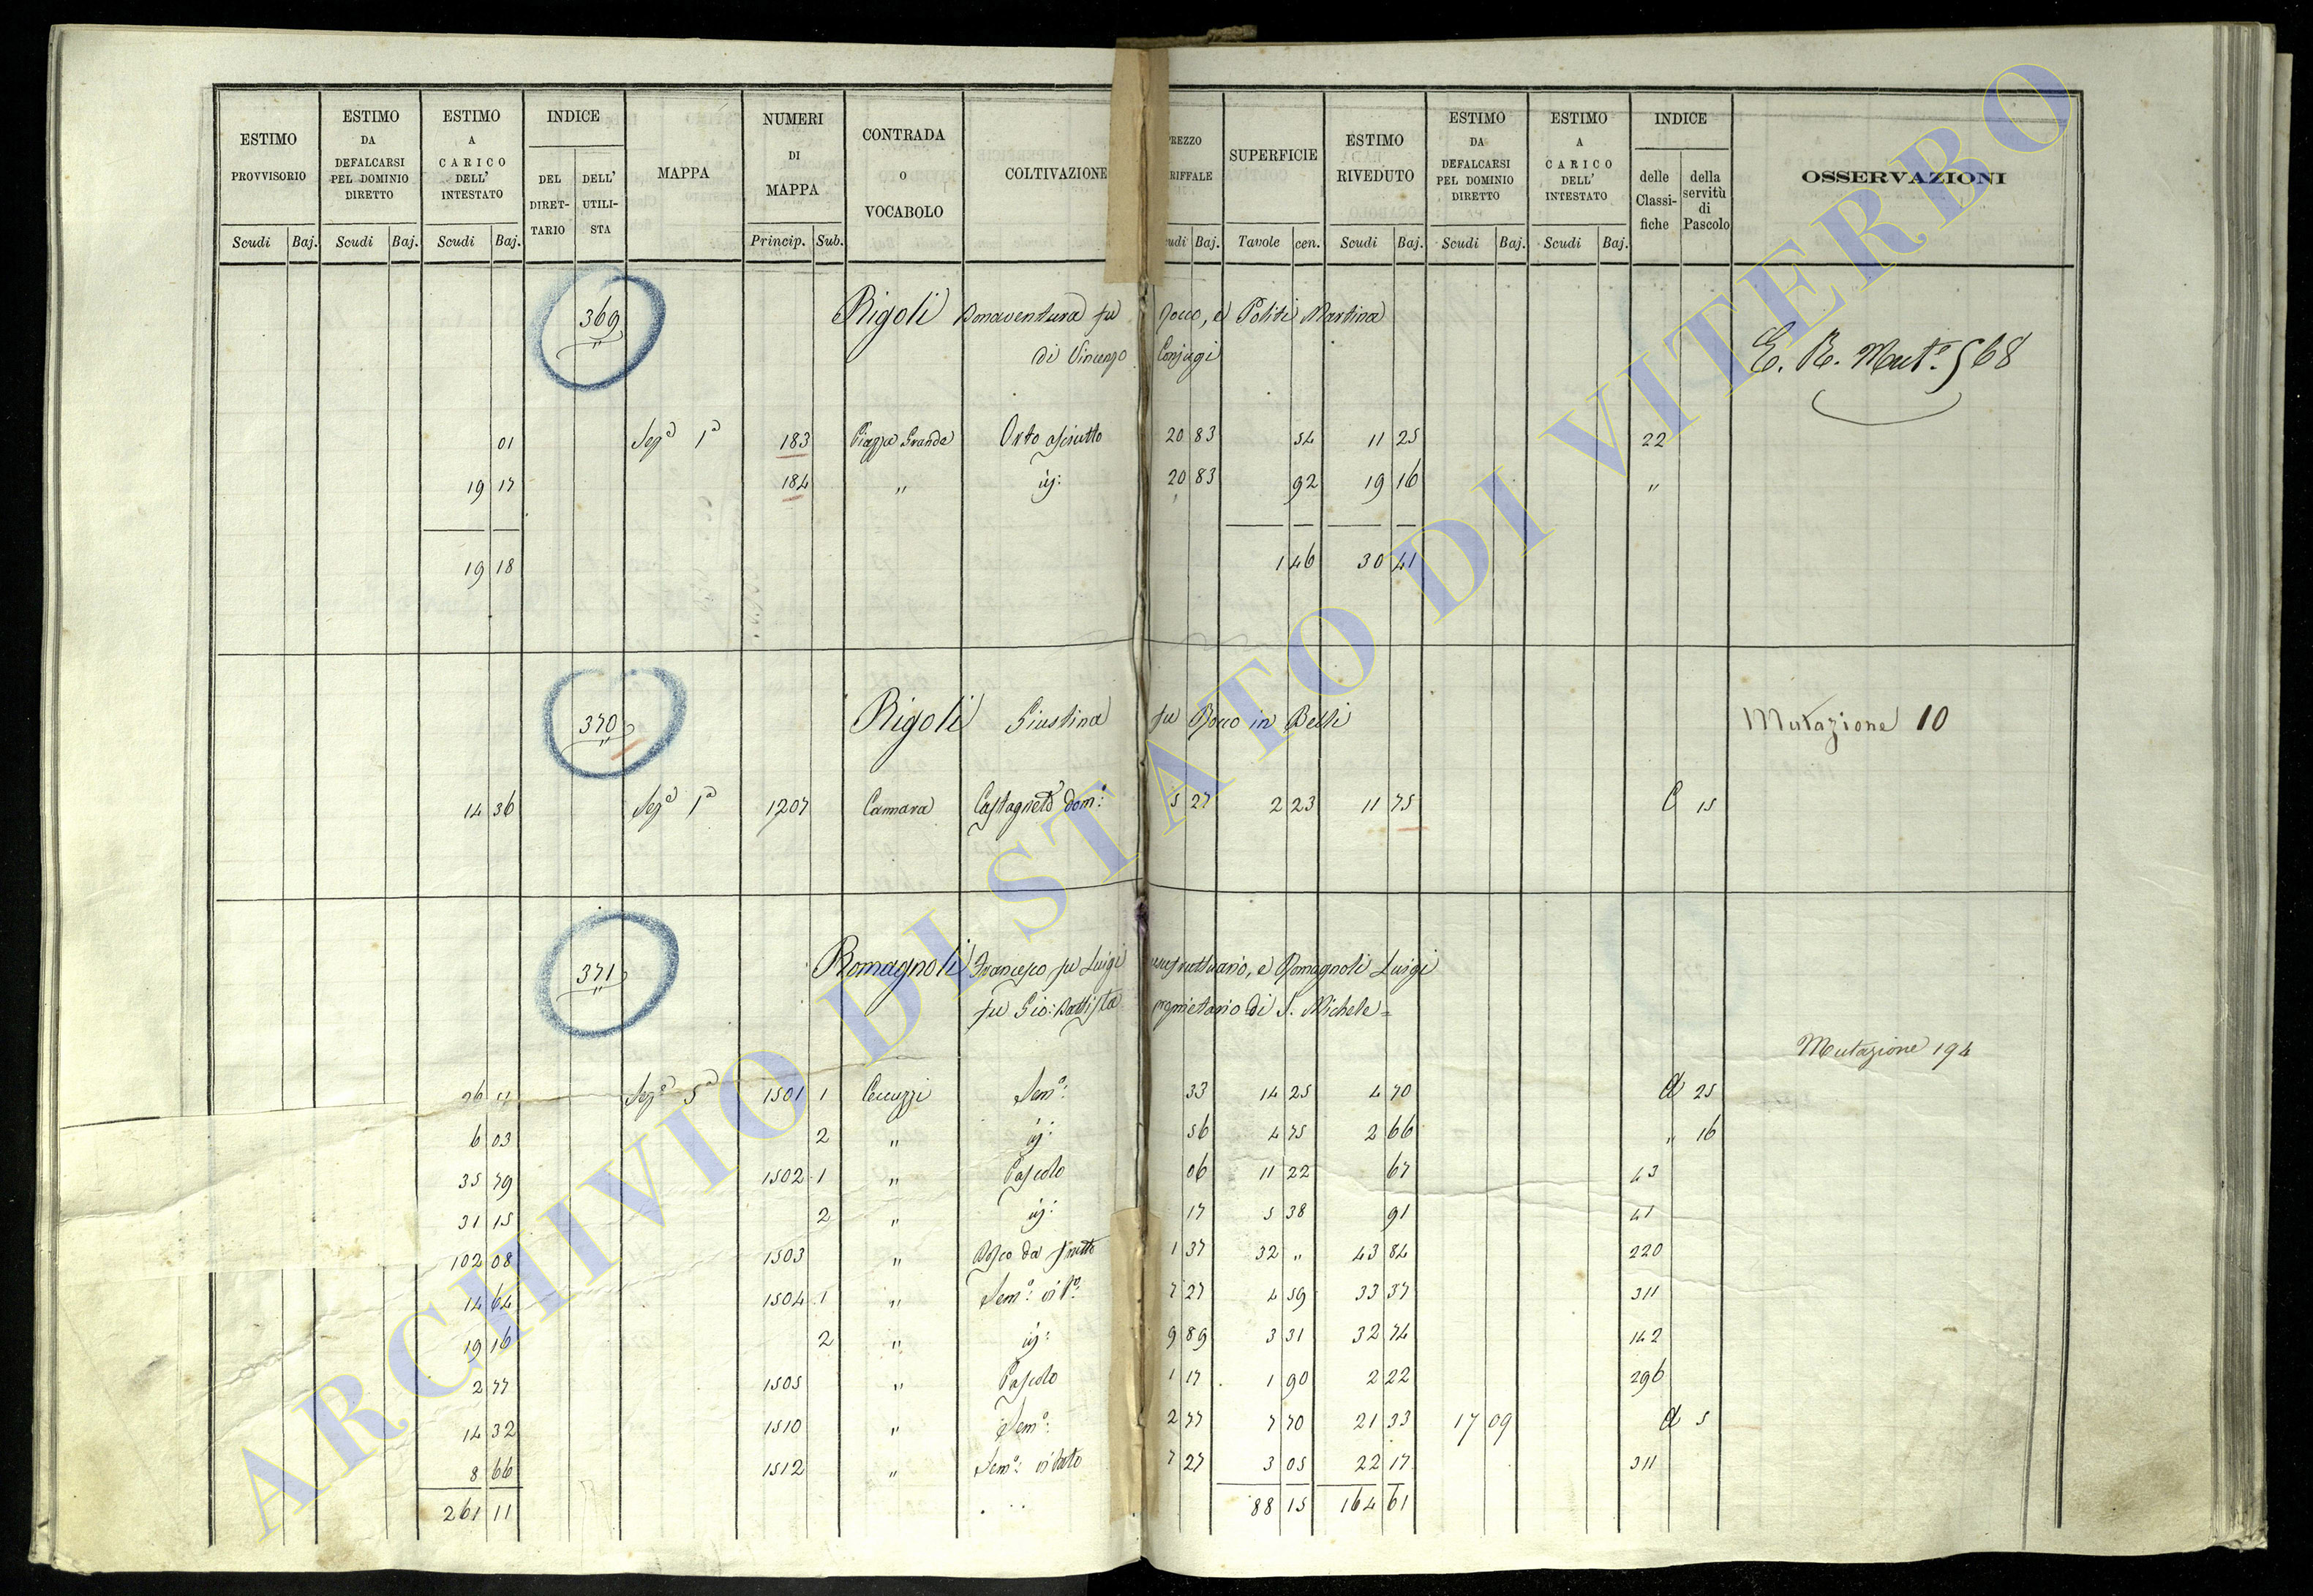 ESTIMO PROVVISORIO Scudi Baj.
ESTIMO DA DEFALCARSI PEL DOMINIO DIRETTO Scudi Baj.
ESTIMO A CARICO DELL' INTESTATO Scudi Baj.
INDICE DEL DIRET-TARIO DELL' UTILI-STA
MAPPA
NUMERI DI MAPPA Princip. Sub.
CONTRADA O VOCABOLO
COLTIVAZIONE
REZZO RIFFALE udi Baj.
SUPERFICIE Tavole cen.
ESTIMO RIVEDUTO Scudi Baj.
ESTIMO DA DEFALCARSI PEL DOMINIO DIRETTO Scudi Baj.
ESTIMO A CARICO DELL' INTESTATO Scudi Baj.
INDICE delle Classi-fiche della servitù di Pascolo
OSSERVAZIONI
369 Rigoli Bonaventura fu Rocco, e Politi Martina
di Vincenzo Conjugi
E. R. Mut.e 568
01 Sez.a 1a 183 Piazza Grande Orto asciutto 20 83 54 11 25 22
19 17 184 " id: 20 83 92 19 16 "
19 18 1 46 30 41
370 Rigoli Giustina fu Rocco in Belli Mutazione 10
14 36 Sez.a 1a 1207 Cannara Castagneto dom.o 5 27 2 23 11 75 C 15
371 Romagnoli Francesco fu Luigi usufruttuario, e Romagnoli Luigi
fu Gio: Battista proprietario di S. Michele =
Mutazione 194
26 Sez.a 5a 1501 1 Cecuzzi Sem.o: 33 14 25 4 70 A 25
6 03 2 " id: 56 4 75 2 66 " 16
35 79 1502 1 " Pascolo 06 11 22 67 43
31 15 2 " id: 17 5 38 91 41
102 08 1503 " Bosco da frutto 1 37 32 " 43 84 220
14 64 1504 1 " Sem.o: vit.o: 7 27 4 59 33 37 311
19 16 2 " id: 9 89 3 31 32 74 142
2 77 1505 " Pascolo 1 17 1 90 2 22 296
14 32 1510 " Sem.o: 2 77 7 70 21 33 17 09 A 5
8 66 1512 " Sem.o: vitato 7 27 3 05 22 17 311
261 11 88 15 164 61
ARCHIVIO DI STATO DI VITERBO